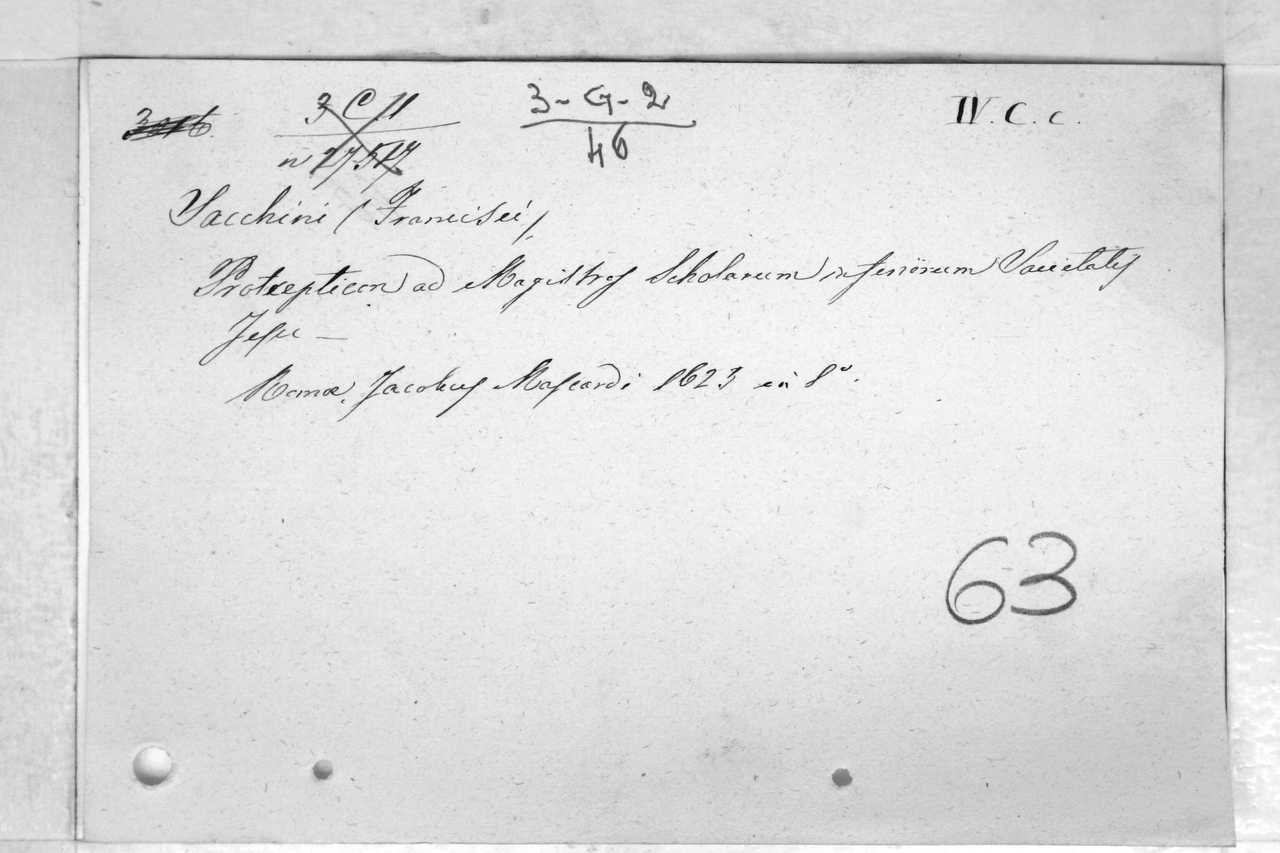 3 C 11 3-G-2 IV. C. c.
n 27517 46
Sacchini (Francisci)
Protrepticon ad Magistros Scholarum inferiorum Societatis
Jesu —
Romæ, Jacobus Mascardi 1623 in 8º.
63